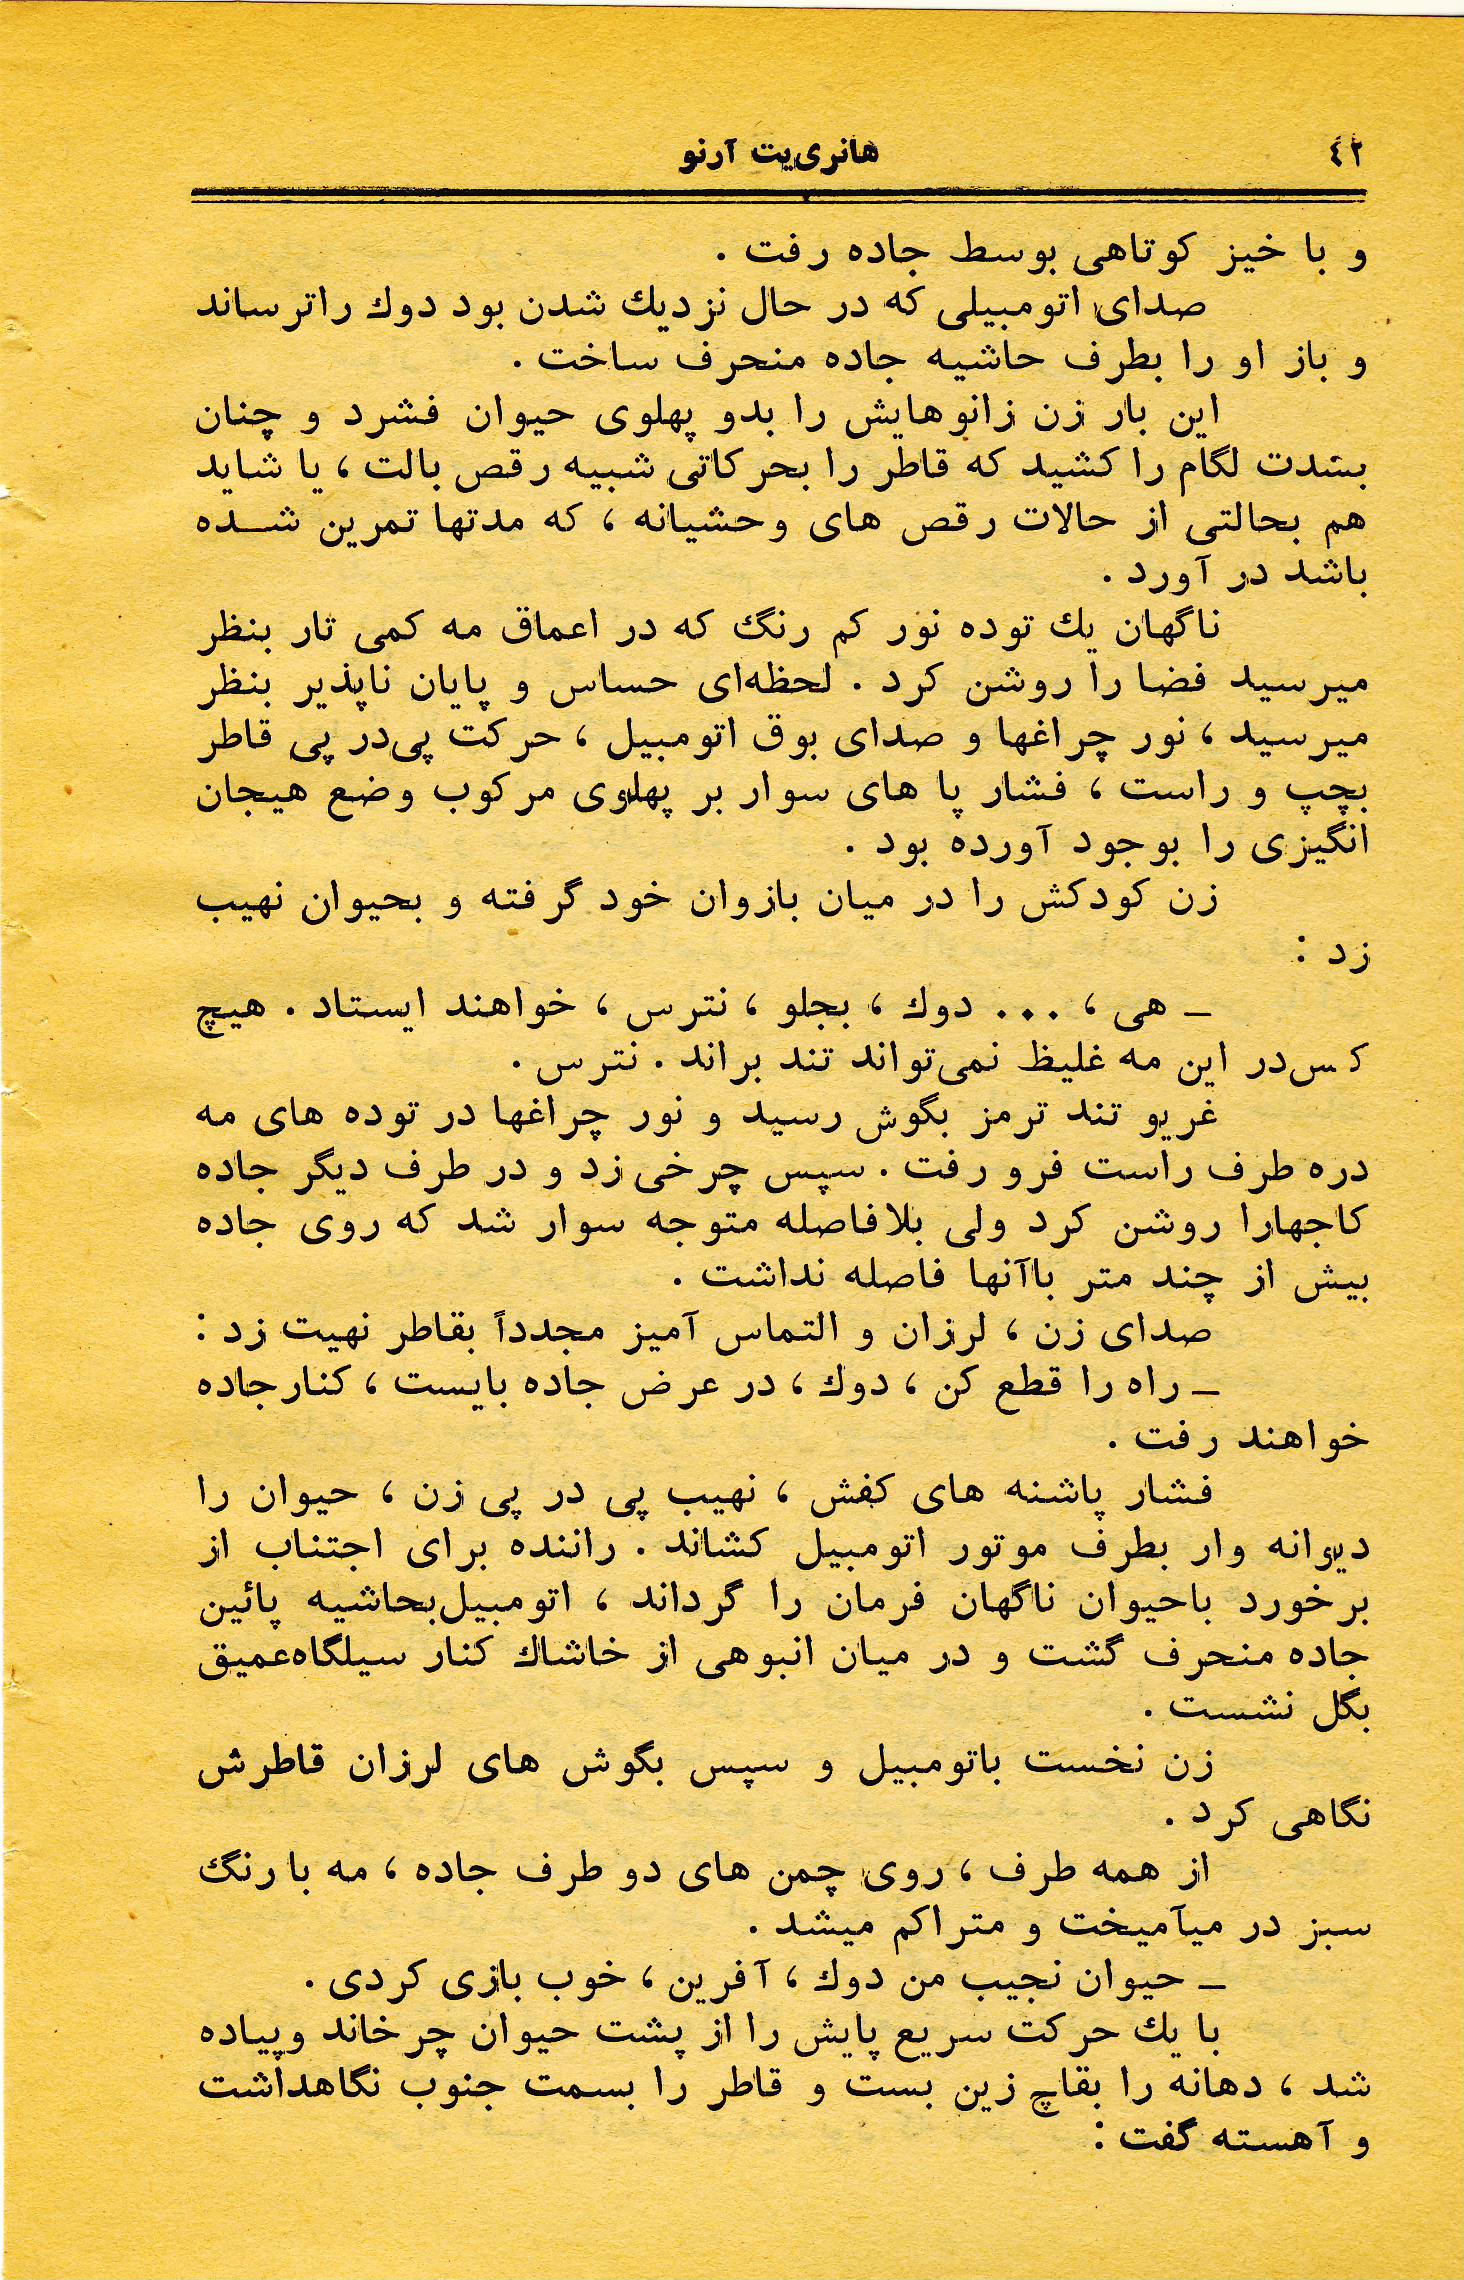 ٤٢
هانری‌یت آرنو
و با خیز کوتاهی بوسط جاده رفت .
صدای اتومبیلی که در حال نزدیك شدن بود دوك راترساند
و باز او را بطرف حاشیه جاده منحرف ساخت .
این بار زن زانوهایش را بدو پهلوی حیوان فشرد و چنان
بشدت لگام را کشید که قاطر را بحرکاتی شبیه رقص بالت ، یا شاید
هم بحالتی از حالات رقص های وحشیانه ، که مدتها تمرین شده
باشد در آورد .
ناگهان یك توده نور کم رنگ که در اعماق مه کمی تار بنظر
میرسید فضا را روشن کرد . لحظه‌ای حساس و پایان ناپذیر بنظر
میرسید ، نور چراغها و صدای بوق اتومبیل ، حرکت پی‌در پی قاطر
بچپ و راست ، فشار پا های سوار بر پهلوی مرکوب وضع هیجان
انگیزی را بوجود آورده بود .
زن کودکش را در میان بازوان خود گرفته و بحیوان نهیب
زد :
ـ هی ، ... دوك ، بجلو ، نترس ، خواهند ایستاد . هیچ
کس‌در این مه غلیظ نمی‌تواند تند براند . نترس .
غریو تند ترمز بگوش رسید و نور چراغها در توده های مه
دره طرف راست فرو رفت . سپس چرخی زد و در طرف دیگر جاده
کاجهارا روشن کرد ولی بلافاصله متوجه سوار شد که روی جاده
بیش از چند متر باآنها فاصله نداشت .
صدای زن ، لرزان و التماس آمیز مجدداً بقاطر نهیت زد :
ـ راه را قطع کن ، دوك ، در عرض جاده بایست ، کنارجاده
خواهند رفت .
فشار پاشنه های کفش ، نهیب پی در پی زن ، حیوان را
دیوانه وار بطرف موتور اتومبیل کشاند . راننده برای اجتناب از
برخورد باحیوان ناگهان فرمان را گرداند ، اتومبیل‌بحاشیه پائین
جاده منحرف گشت و در میان انبوهی از خاشاك کنار سیلگاه‌عمیق
بگل نشست .
زن نخست باتومبیل و سپس بگوش های لرزان قاطرش
نگاهی کرد .
از همه طرف ، روی چمن های دو طرف جاده ، مه با رنگ
سبز در میآمیخت و متراکم میشد .
ـ حیوان نجیب من دوك ، آفرین ، خوب بازی کردی .
با یك حرکت سریع پایش را از پشت حیوان چرخاند وپیاده
شد ، دهانه را بقاچ زین بست و قاطر را بسمت جنوب نگاهداشت
و آهسته گفت :